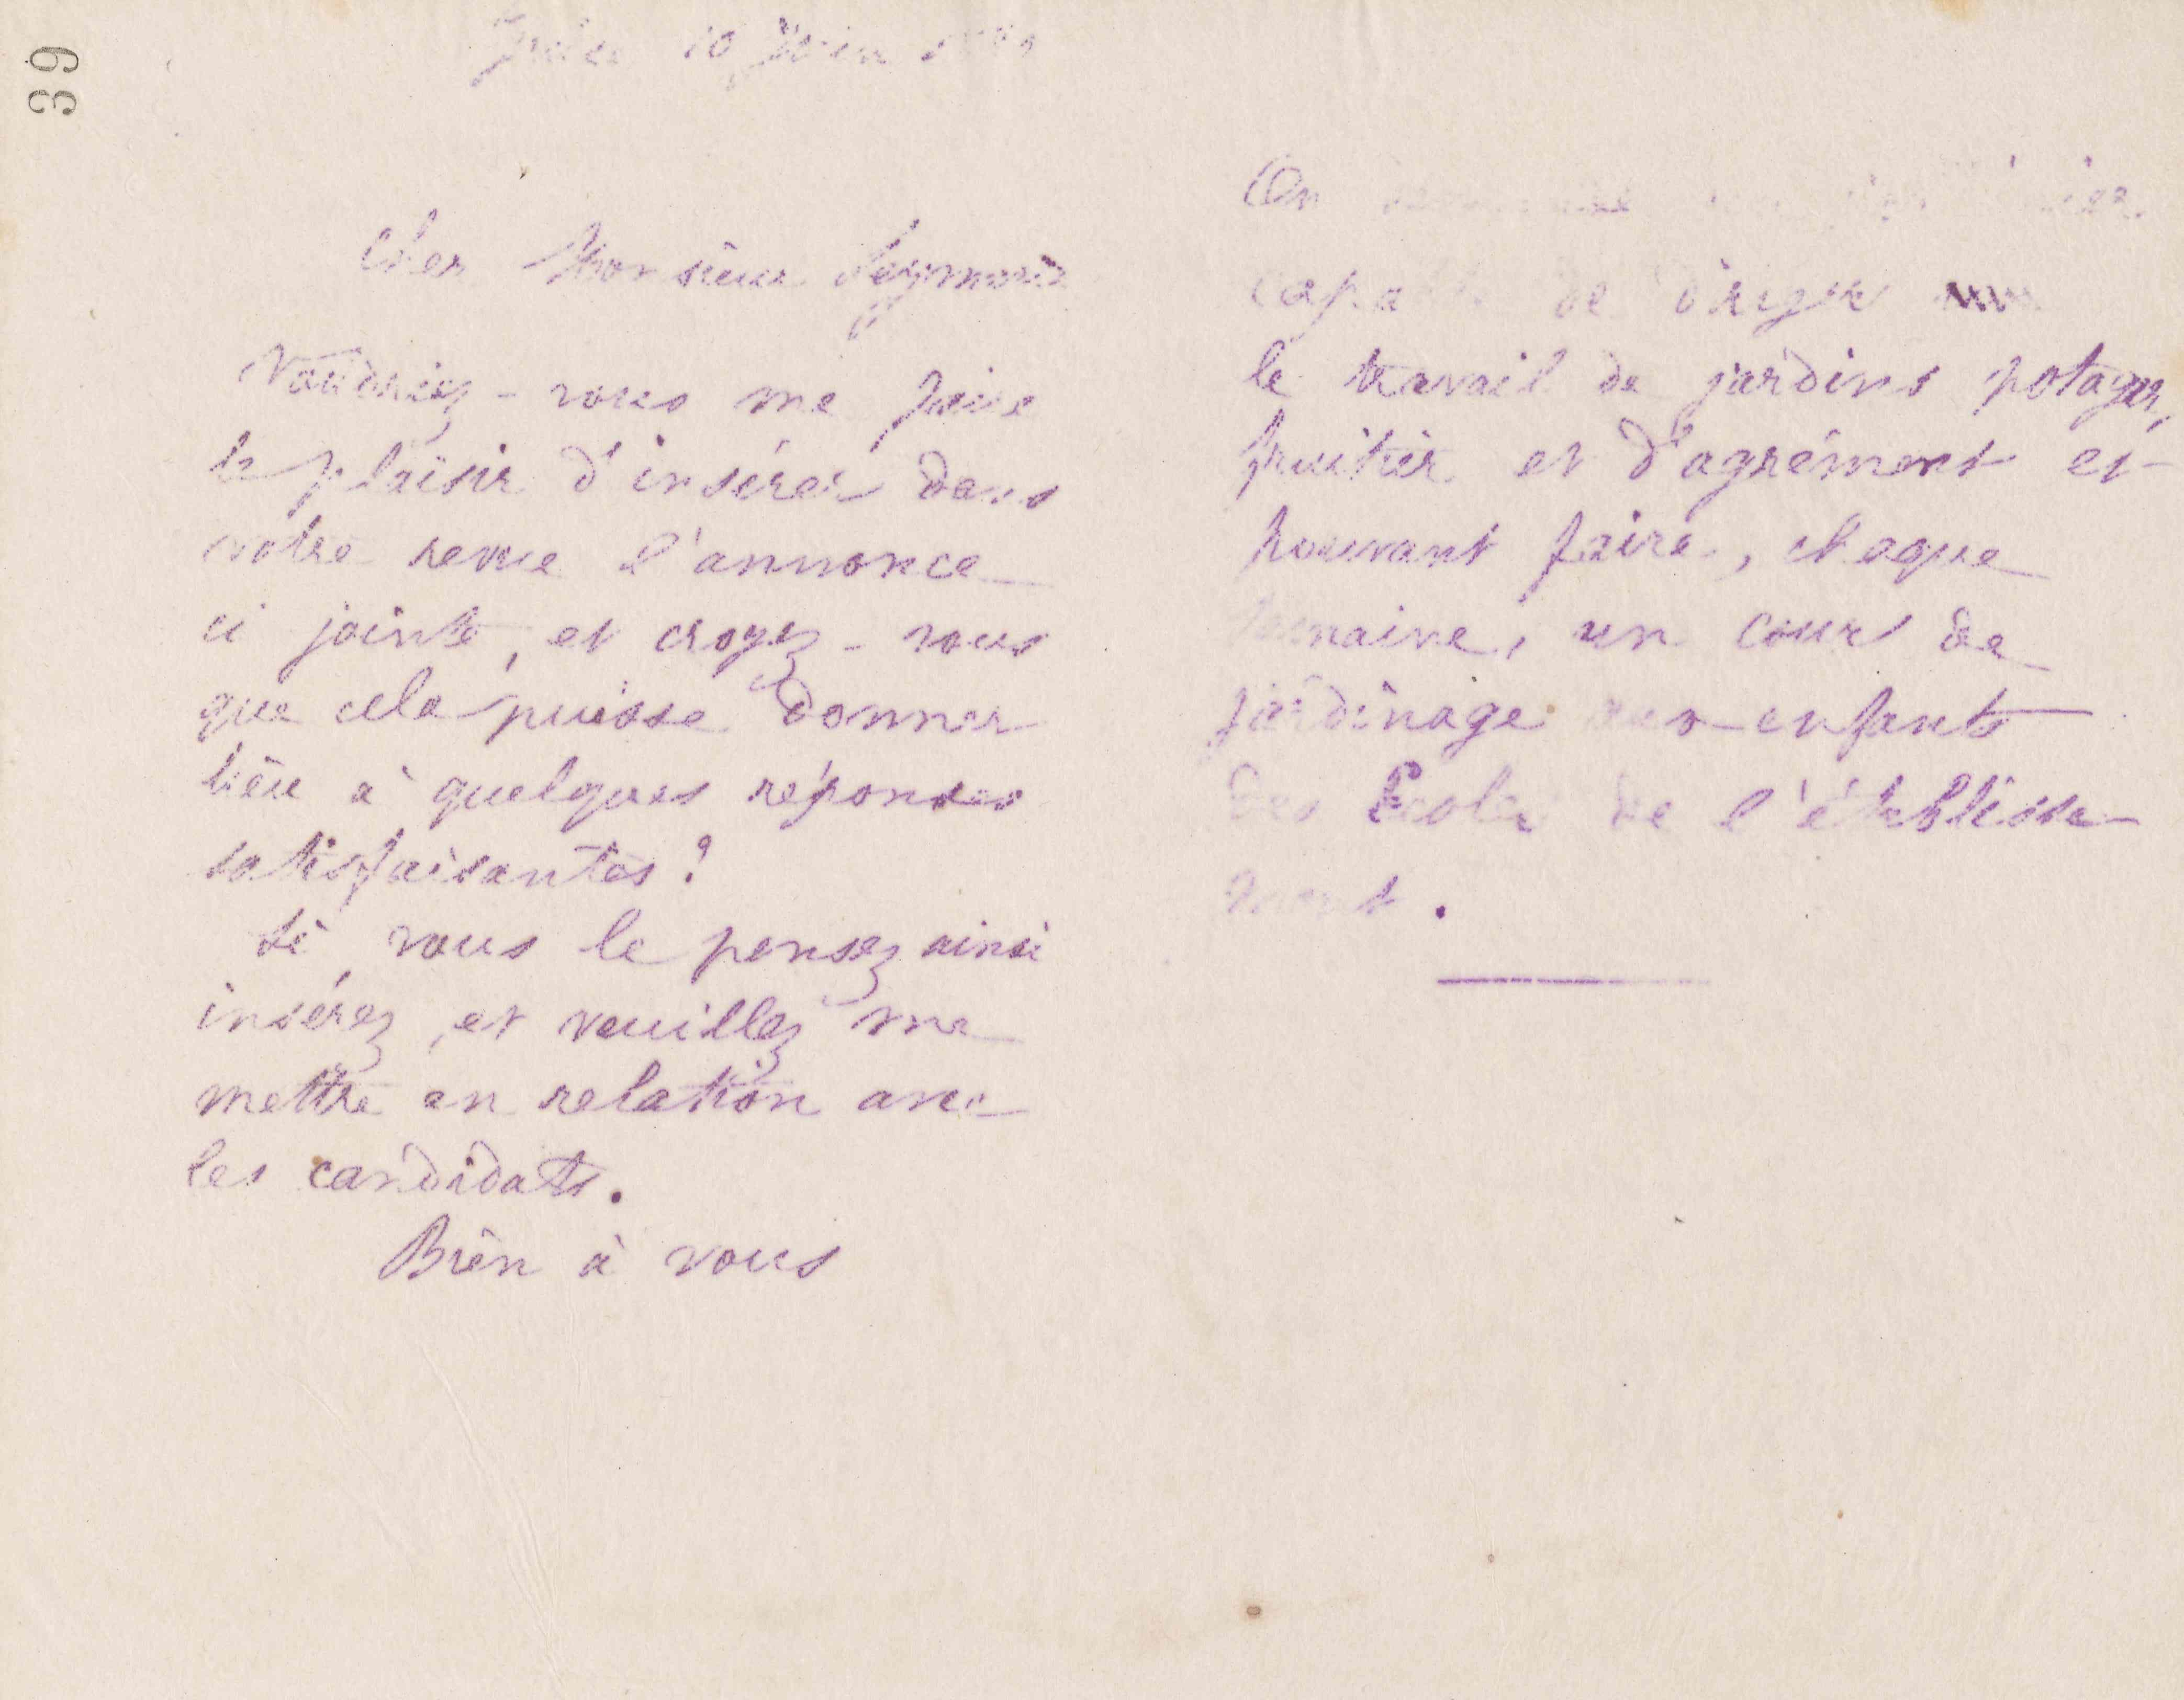 39
10 Juin
Cher Monsieur Leymarie
Voudriez-vous me faire
le plaisir d'insérer dans
votre revue l'annonce
ci jointe, et croyez-vous
que cela puisse donner
lieu à quelques réponses
satisfaisantes?
Si vous le pensez ainsi
insérez, et veuillez me
mettre en relation avec
les candidats.
Bien à vous
On
capable de diriger
le travail de jardins potager,
fruitier et d'agrément et
pouvant faire, chaque
semaine, un cours de
jardinage aux enfants
des Ecoles de l'établisse-
ment.